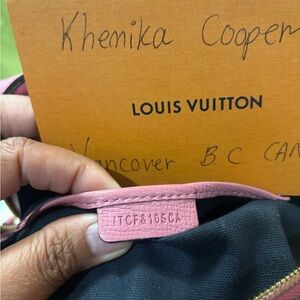 Khemika Cooper
LOUIS VUITTON
Vancover B C CAN
ITCF&10SCA